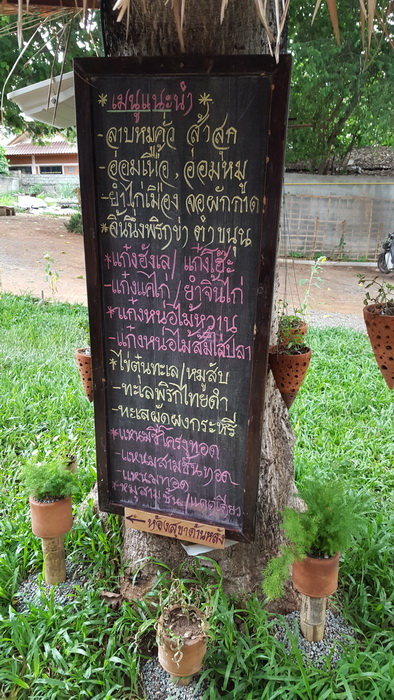 * เมนูแนะนำ *
-ลาบหมูคั่ว ส้าสุก
-อ่อมเนื้อ, อ่อมหมู
-ยำไก่เมือง จอผักกาด
*ลิ้นนึ่งพริกข่า ตำขนุน
*แก๋งฮังเล/ แก๋งโฮ๊ะ
-แก๋งแคไก่/ยำจิ๊นไก่
*แก๋งหน่อไม้หวาน
-แก๋งหน่อไม้ส้มใส่ปลา
*ไข่ตุ๋นทะเล/หมูสับ
-ทะเลพริกไทยดำ
-ทะเลผัดผงกะหรี่
*แหนมซี่โครงทอด
-แหนมสามชั้นทอด
-แหนมทอด
*หมูสามชั้น/แดดเดียว
←ห้องสุขาด้านหลัง